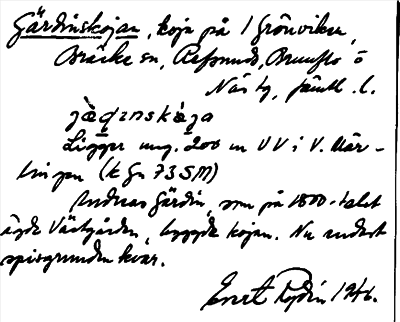 Gärdinskojan, koja på 1 Grönviken,
Bräcke sn, Refsund, Brunflo o
Näs tg, Jämtl. l.
Ligger ung. 200 m VV i V. Mär-
ningen (k G 73 SM)
Andreas Gärdin, som på 1800-talet
ägde Västgården, byggde kojan. Nu endast
spisgrunden kvar.
Evert Rydin 1946.